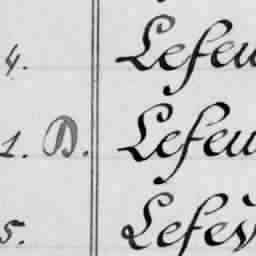 4. Lefeu
1. D. Lefeu
5. Lefèv